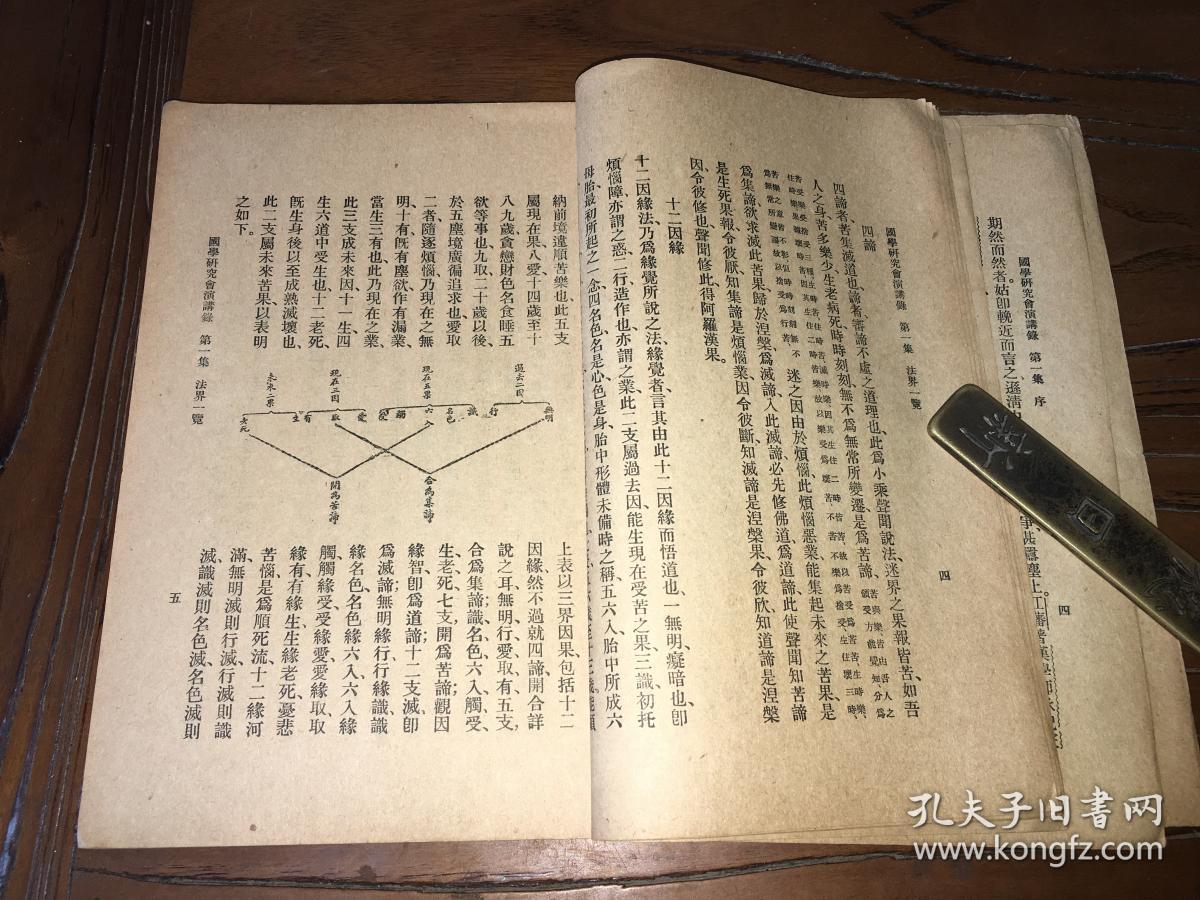 國學研究會演講錄 第一集 序
四
期然而然者。姑卽輓近而言之遜淸
國學研究會演講錄 第一集 法界一覽
四
四諦
四諦者苦集滅道也、諦者審諦不虛之道理也、此爲小乘聲聞說法、迷界之果報皆苦、如吾
人之身苦多樂少生老病死時時刻刻無不爲無常所變遷、是爲苦諦、
迷之因由於煩惱、此煩惱惡業、能集起未來之苦果、是
爲集諦、欲求滅此苦果、歸於涅槃、爲滅諦、入此滅諦、必先修佛道、爲道諦、此使聲聞知苦諦
是生死果報、令彼厭、知集諦是煩惱業因、令彼斷、知滅諦是涅槃果、令彼欣、知道諦是涅槃
因、令彼修也、聲聞修此、得阿羅漢果。
十二因緣
十二因緣法、乃爲緣覺所說之法、緣覺者、言其由此十二因緣而悟道也、一無明、癡暗也、卽
煩惱障、亦謂之惑、二行、造作也、亦謂之業、此二支屬過去因、能生現在受苦之果、三識、初托
母胎、最初所起之一念、四名色、名是心、色是身、胎中形體未備時之稱、五六入、胎中所成六
納前境違順苦樂也、此五支
屬現在果、八愛、十四歲至十
八九歲貪戀財色名食睡五
欲等事也、九取、二十歲以後、
於五塵境、廣徧追求也、愛取
二者、隨逐煩惱、乃現在之無
明、十有、旣有塵欲、作有漏業、
當生三有也、此乃現在之業、
此三支成未來因、十一生、四
生六道中受生也、十二老死、
旣生身後、以至成熟滅壞也、
此二支屬未來苦果、以表明
之如下。
過去二因
現在五果
現在三因
未來二果
無明
行
識
名色
六入
觸
受
愛
取
有
生
老死
合爲集諦
開爲苦諦
上表以三界因果、包括十二
因緣、然不過就四諦、開合詳
說之耳、無明行愛取有五支、
合爲集諦、識名色六入觸受、
生老死、七支、開爲苦諦、觀因
緣智、卽爲道諦、十二支滅、卽
爲滅諦、無明緣行、行緣識、識
緣名色、名色緣六入、六入緣
觸、觸緣受、受緣愛、愛緣取、取
緣有、有緣生、生緣老死、憂悲
苦惱、是爲順死流、十二緣河
滿、無明滅則行滅、行滅則識
滅、識滅則名色滅、名色滅則
國學研究會演講錄 第一集 法界一覽
五
孔夫子旧书网
www.kongfz.com